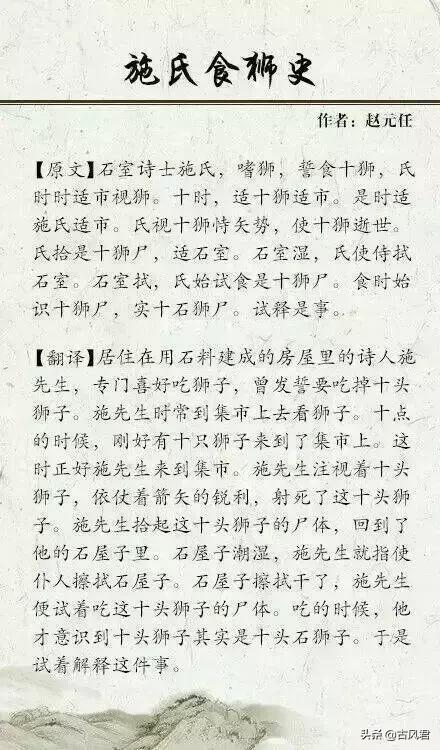 施氏食狮史
作者：赵元任
【原文】石室诗士施氏，嗜狮，誓食十狮，氏
时时适市视狮。十时，适十狮适市。是时适
施氏适市。氏视十狮恃矢势，使十狮逝世。
氏拾是十狮尸，适石室。石室湿，氏使侍拭
石室。石室拭，氏始试食是十狮尸。食时始
识十狮尸，实十石狮尸。试释是事。
【翻译】居住在用石料建成的房屋里的诗人施
先生，专门喜好吃狮子，曾发誓要吃掉十头
狮子。施先生时常到集市上去看狮子。十点
的时候，刚好有十只狮子来到了集市上。这
时正好施先生来到集市。施先生注视着十头
狮子，依仗着箭矢的锐利，射死了这十头狮
子。施先生拾起这十头狮子的尸体，回到了
他的石屋子里。石屋子潮湿，施先生就指使
仆人擦拭石屋子。石屋子擦拭干了，施先生
便试着吃这十头狮子的尸体。吃的时候，他
才意识到十头狮子其实是十头石狮子。于是
试着解释这件事。
头条 @古风君